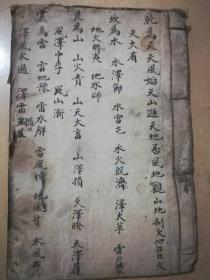 乾為天 天風姤 天山遯 天地否 風地觀 山地剝 火地晉 火
天火有
坎為水 水澤節 水雷屯 水火既濟 澤火革 雷
地火明夷 地水師
艮為山 山火賁 山天大畜 山澤損 火澤睽 天澤履
風澤中孚 風山漸
震為雷 雷地豫 雷水解 雷風恆 地風升 水風井
澤風大過 澤雷隨